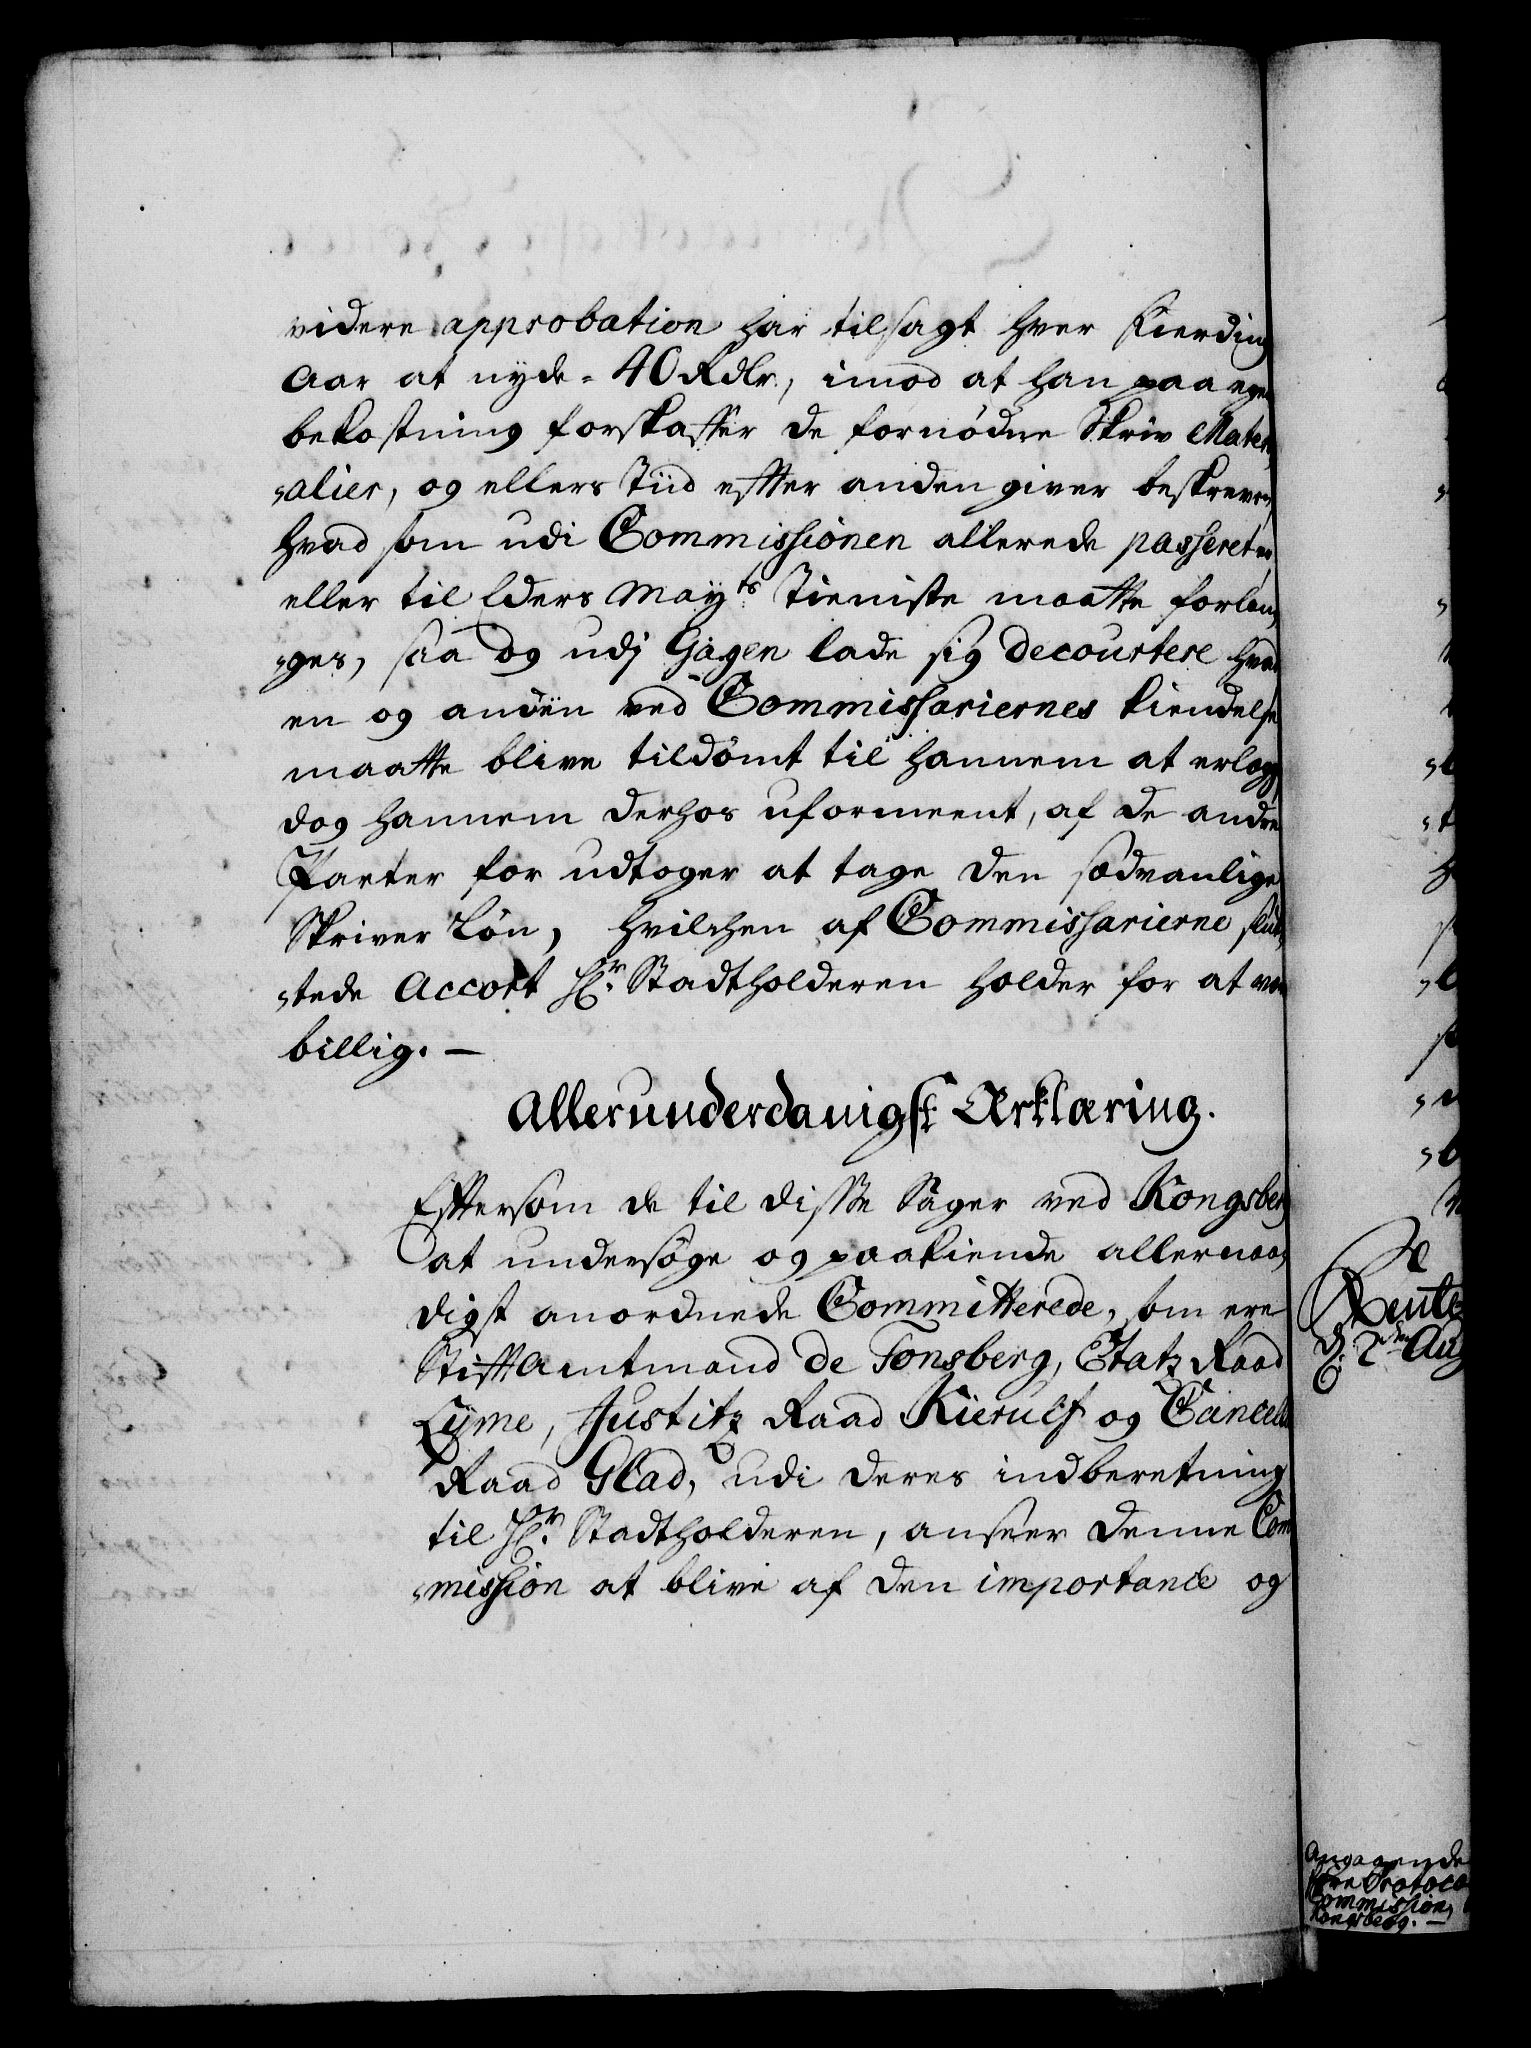 videre approbation har tilsagt hver Fierding
Aar at nyde = 40 Rdlr., imod at han paa egen
bekostning forskaffer de fornødne Skriv Mater
=alier, og ellers Tiid efter anden giver beskreven,
hvad som udi Commissionen allerede passeret er,
eller til Eders Mayts Tieniste maatte forlan,
=ges, saa og udj Gagen lade sig decourtere hvad
en og anden ved Commissariernes kiendelse
maatte blive tildømt til hannem at erlegge,
dog hannem derhos uformeent, af de andre
Parter for udtoger at tage den sædvanlige
Skriver Løn, hvilchen af Commissarierne slut,
=tede Accort Hr. Stadtholderen holder for at være
billig. —
Allerunderdanigst Erklæring.
Eftersom de til disse Sager ved Kongsberg
at undersøge og paakiende allernaa,
digst anordnede Committerede, som ere
Stiftamtmand de Tonsberg, Etatz Raad
Lyme, Justitz Raad Kierulf og Cancelie
Raad Glad, udi deres indberetning
til Hr. Stadtholderen, anseer denne Com
=mission at blive af den importance og
Rente
d. 2den Aug
Angaaende
Protoco
Commission,
Kongsberg. —